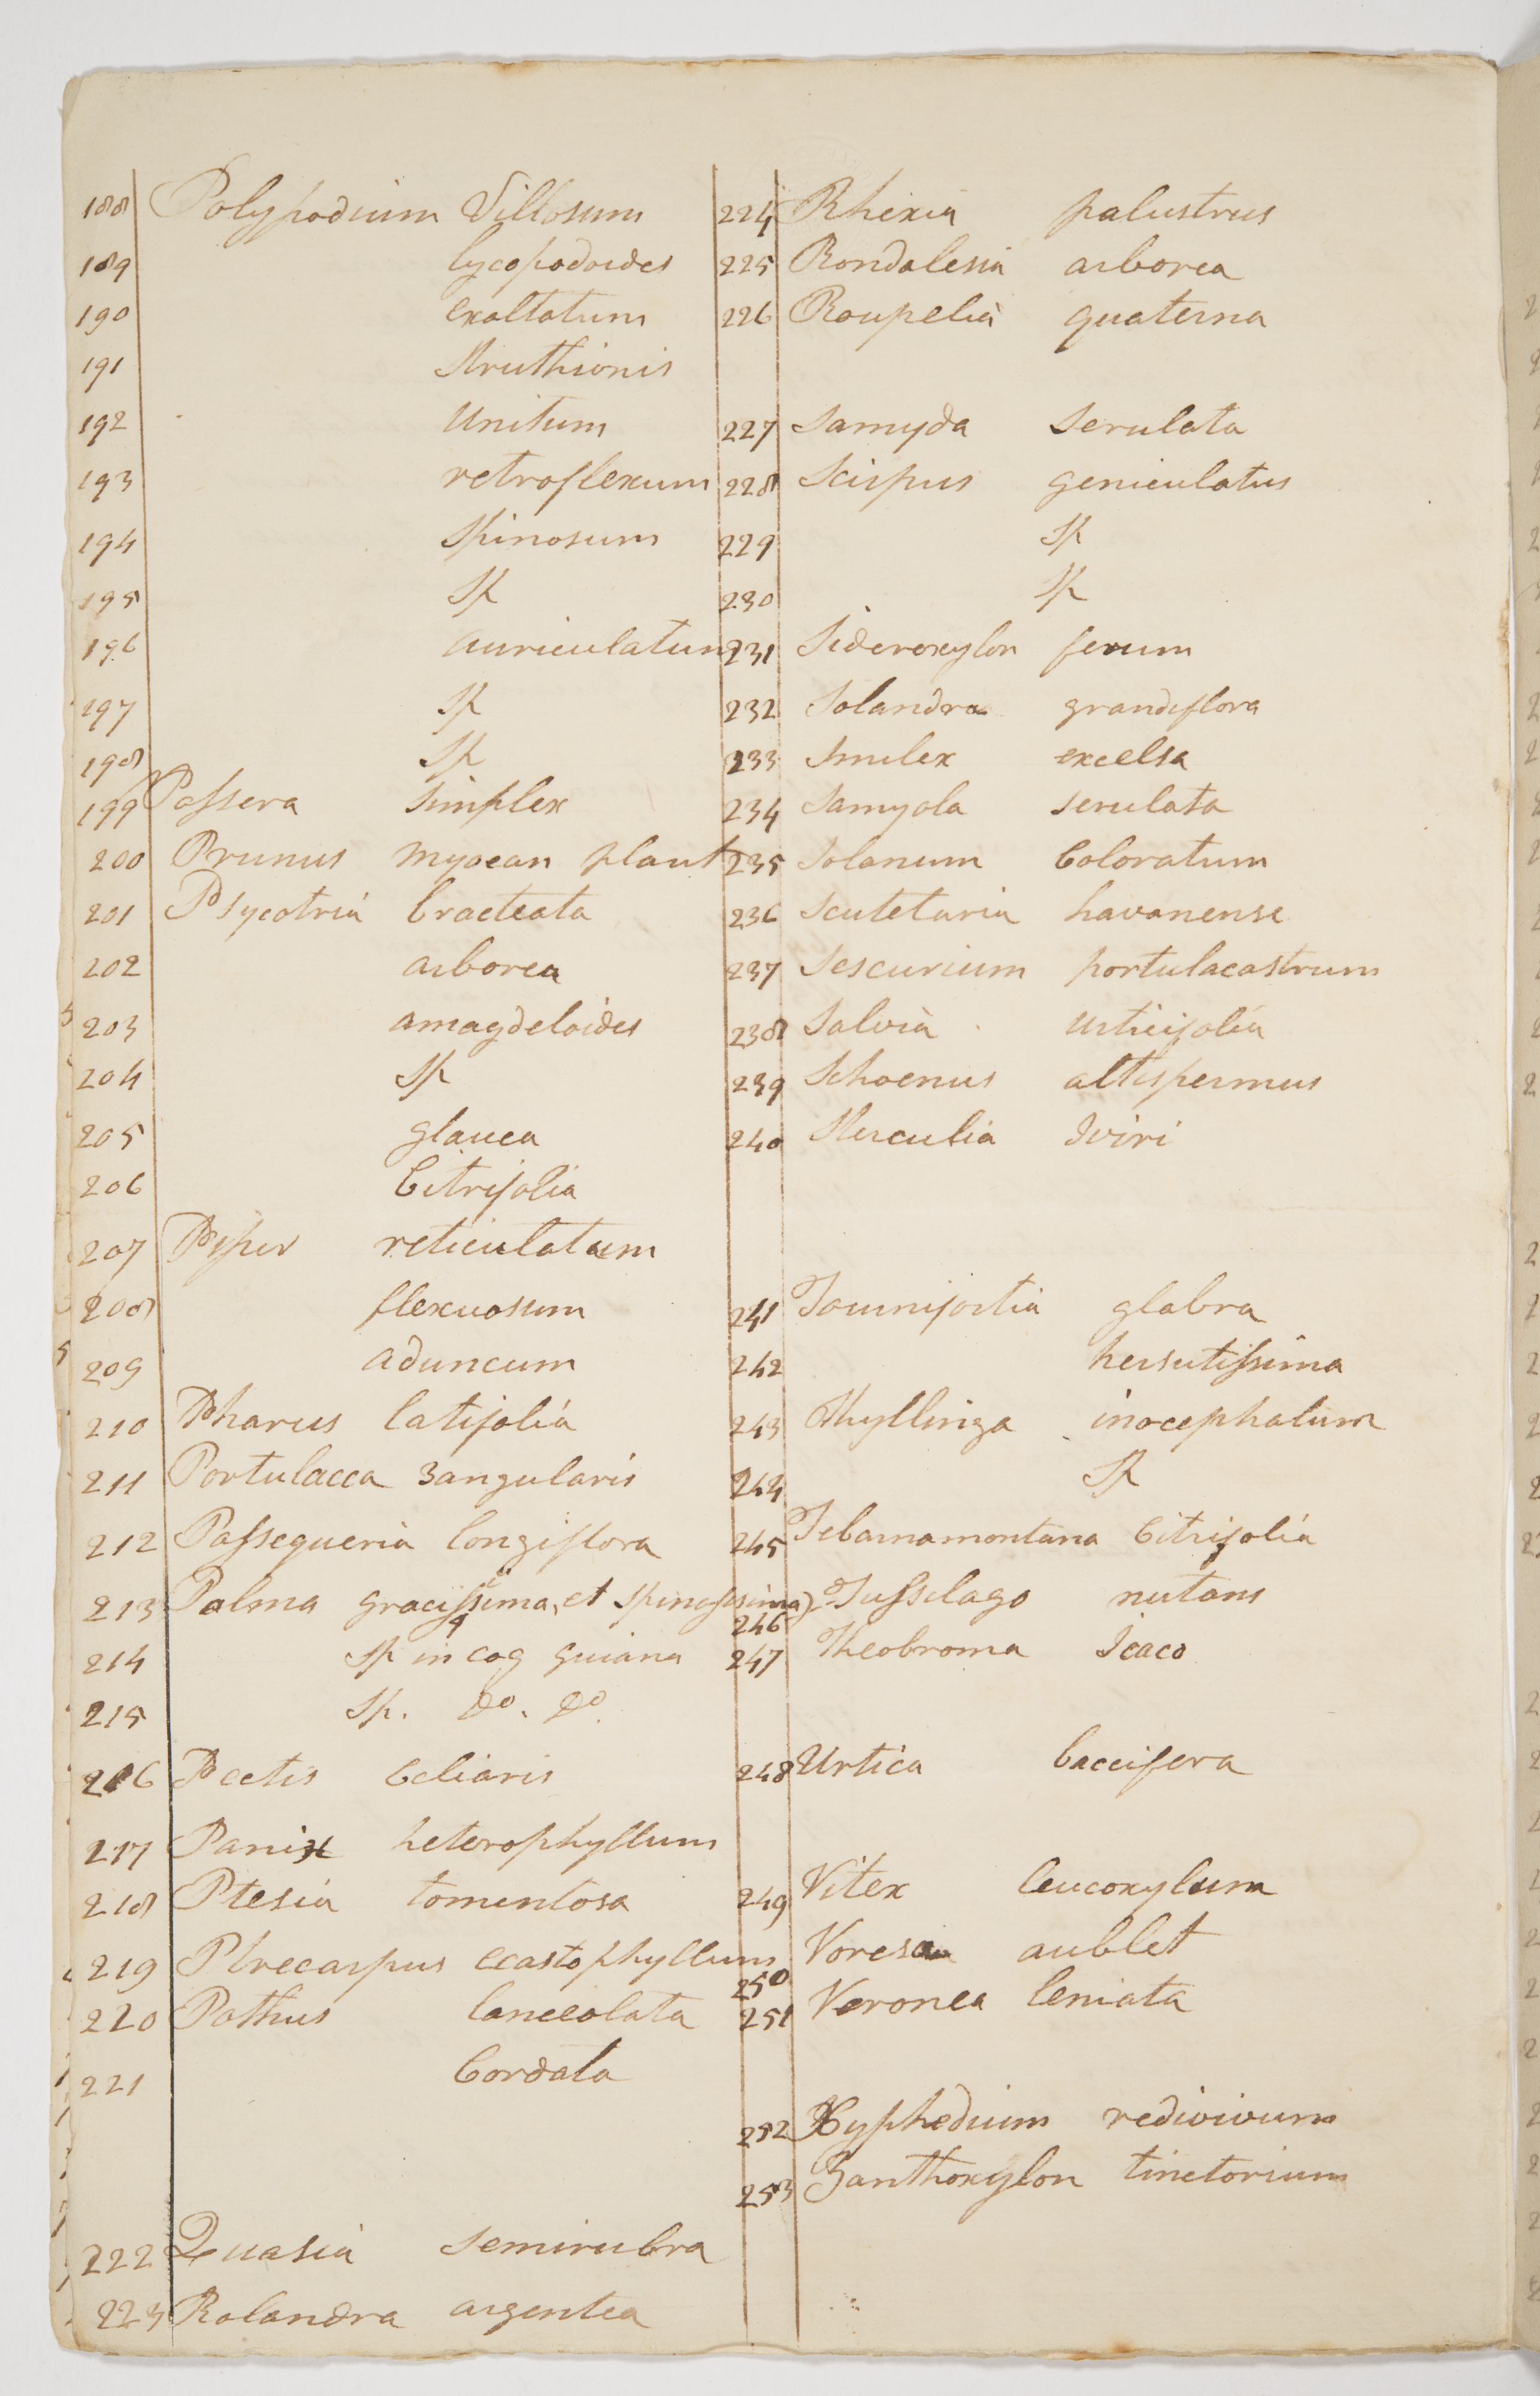 188 Polypodium Villosum
189 lycopodoides
190 exaltatum
191 Struthionis
192 Unitum
193 retroflexum
194 Spinosum
195 Sp
196 auriculatum
197 Sp
198 Sp
199 Passera Simplex
200 Prunus myocan plant
201 Psycotria bracteata
202 arborea
203 amagdeloides
204 Sp
205 glauca
206 Citrifolia
207 Piper reticulatum
208 flexuosum
209 aduncum
210 Pharus latifolia
211 Portulacca 3angularis
212 Passequeria longiflora
213 Palma gracissima, et Spinosissima)
214 Sp in cog guiana
215 Sp. Do. Do.
216 Pectis Celiaris
217 Panix heterophyllum
218 Ptesia tomentosa
219 Ptrecarpus ecastophyllum
220 Pothus lanceolata
221 Cordata
222 Quasia Semirubra
223 Rolandra argentea
224 Rhexia palustrus
225 Rondalesia arborea
226 Roupelia quaterna
227 Samyda Serulata
228 Scirpus geniculatus
229 Sp
230 Sp
231 Sideroxylon ferum
232 Solandra grandiflora
233 Smilex excelsa
234 Samyola serulata
235 Solanum Coloratum
236 Scutetaria havanense
237 Sescurium portulacastrum
238 Salvia urticifolia
239 Schoenus altispermus
240 Sterculia Iviri
241 Tournifortia glabra
242 hersutissima
243 Thyllinga inocephalum
244 Sp
245 Tebarnamontana Citrifolia
246 Tussilago nutans
247 Theobroma Icaco
248 Urtica baccifera
249 Vitex leucoxylum
250 Voresa aublet
251 Veronea leniata
252 Xyphedium redivivum
253 Zanthoxylon tinctorium